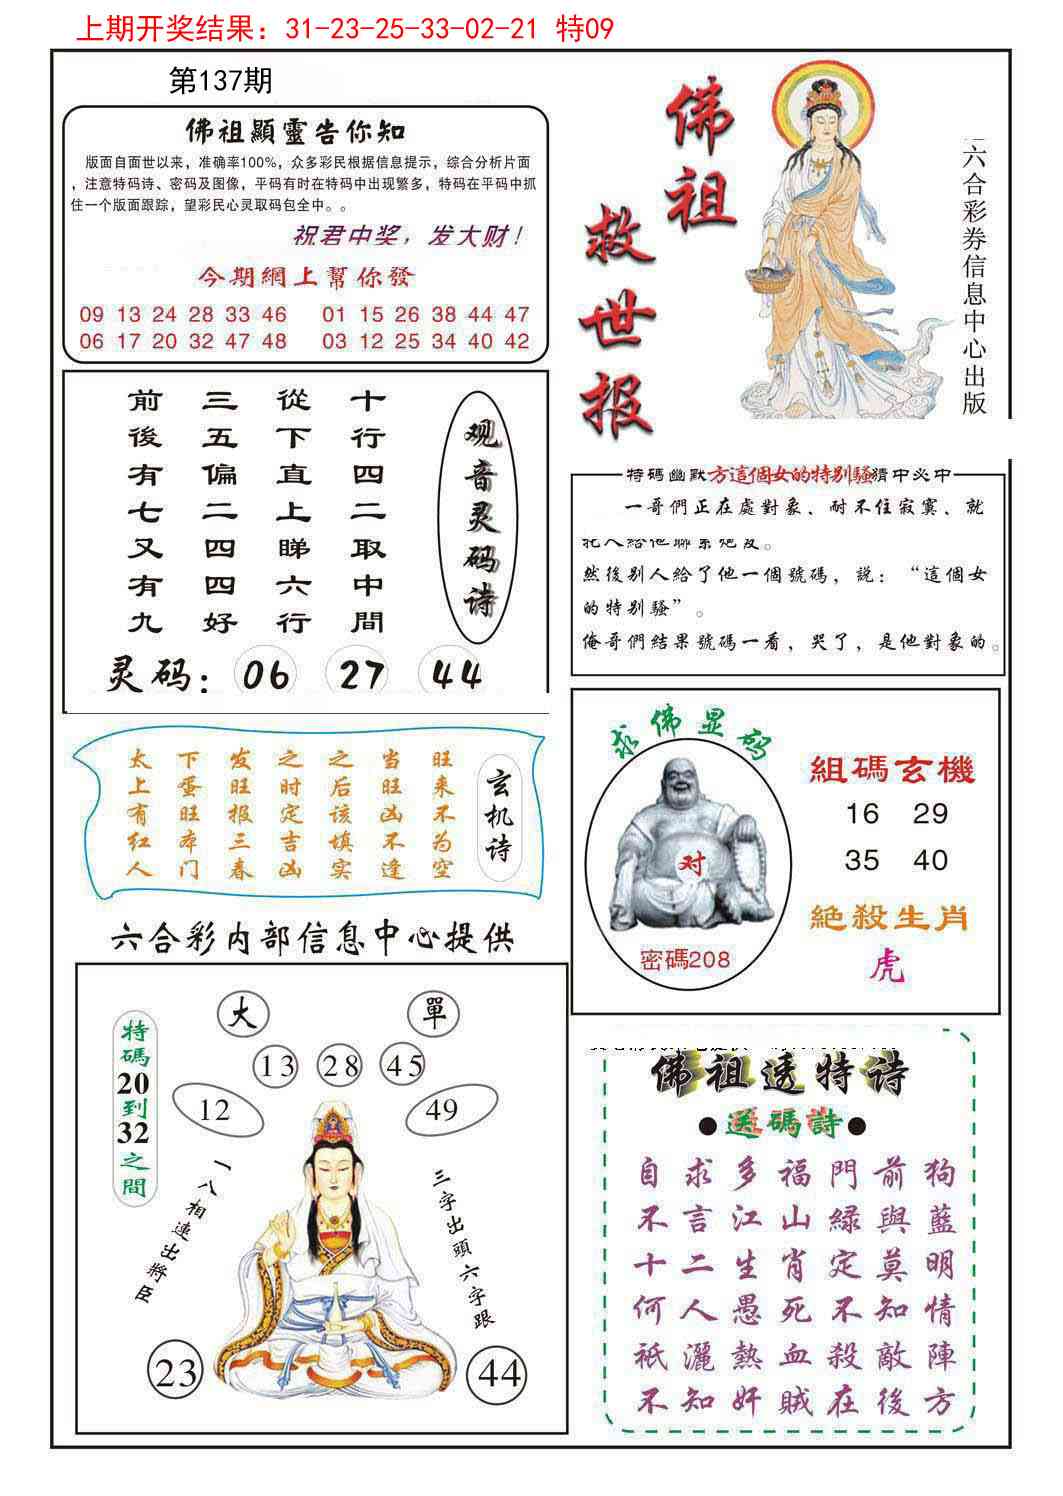 上期开奖结果：31-23-25-33-02-21 特09
第137期
佛祖顯靈告你知
版面自面世以来，准确率100%，众多彩民根据信息提示，综合分析片面
，注意特码诗、密码及图像，平码有时在特码中出现繁多，特码在平码中抓
住一个版面跟踪，望彩民心灵取码包全中。。
祝君中奖，发大财！
今期網上幫你發
09 13 24 28 33 46 01 15 26 38 44 47
06 17 20 32 47 48 03 12 25 34 40 42
佛祖
救世报
六合彩券信息中心出版
前三從十
後五下行
有偏直四
七二上二
又四睇取
有四六中
九好行間
观音灵码诗
灵码：06 27 44
特碼幽默方這個女的特别騷猜中必中
一哥們正在處對象、耐不住寂寞、就
托人給他聯系炮友。
然後别人給了他一個號碼，説：“這個女
的特别騷”。
俺哥們結果號碼一看，哭了，是他對象的。
太下发之之当旺
上蛋旺时后旺来
有旺报定该凶不
红本三吉填不为
人门春凶实逢空
玄机诗
求佛显码
对
密碼208
組碼玄機
16 29
35 40
絕殺生肖
虎
六合彩内部信息中心提供
特碼20到32之間
大
單
13
28
45
12
49
一八相連出將臣
三字出頭六字跟
23
44
佛祖透特诗
●送碼詩●
自求多福門前狗
不言江山緑與藍
十二生肖定莫明
何人愚死不知情
祇灑熱血殺敵陣
不知奸賊在後方